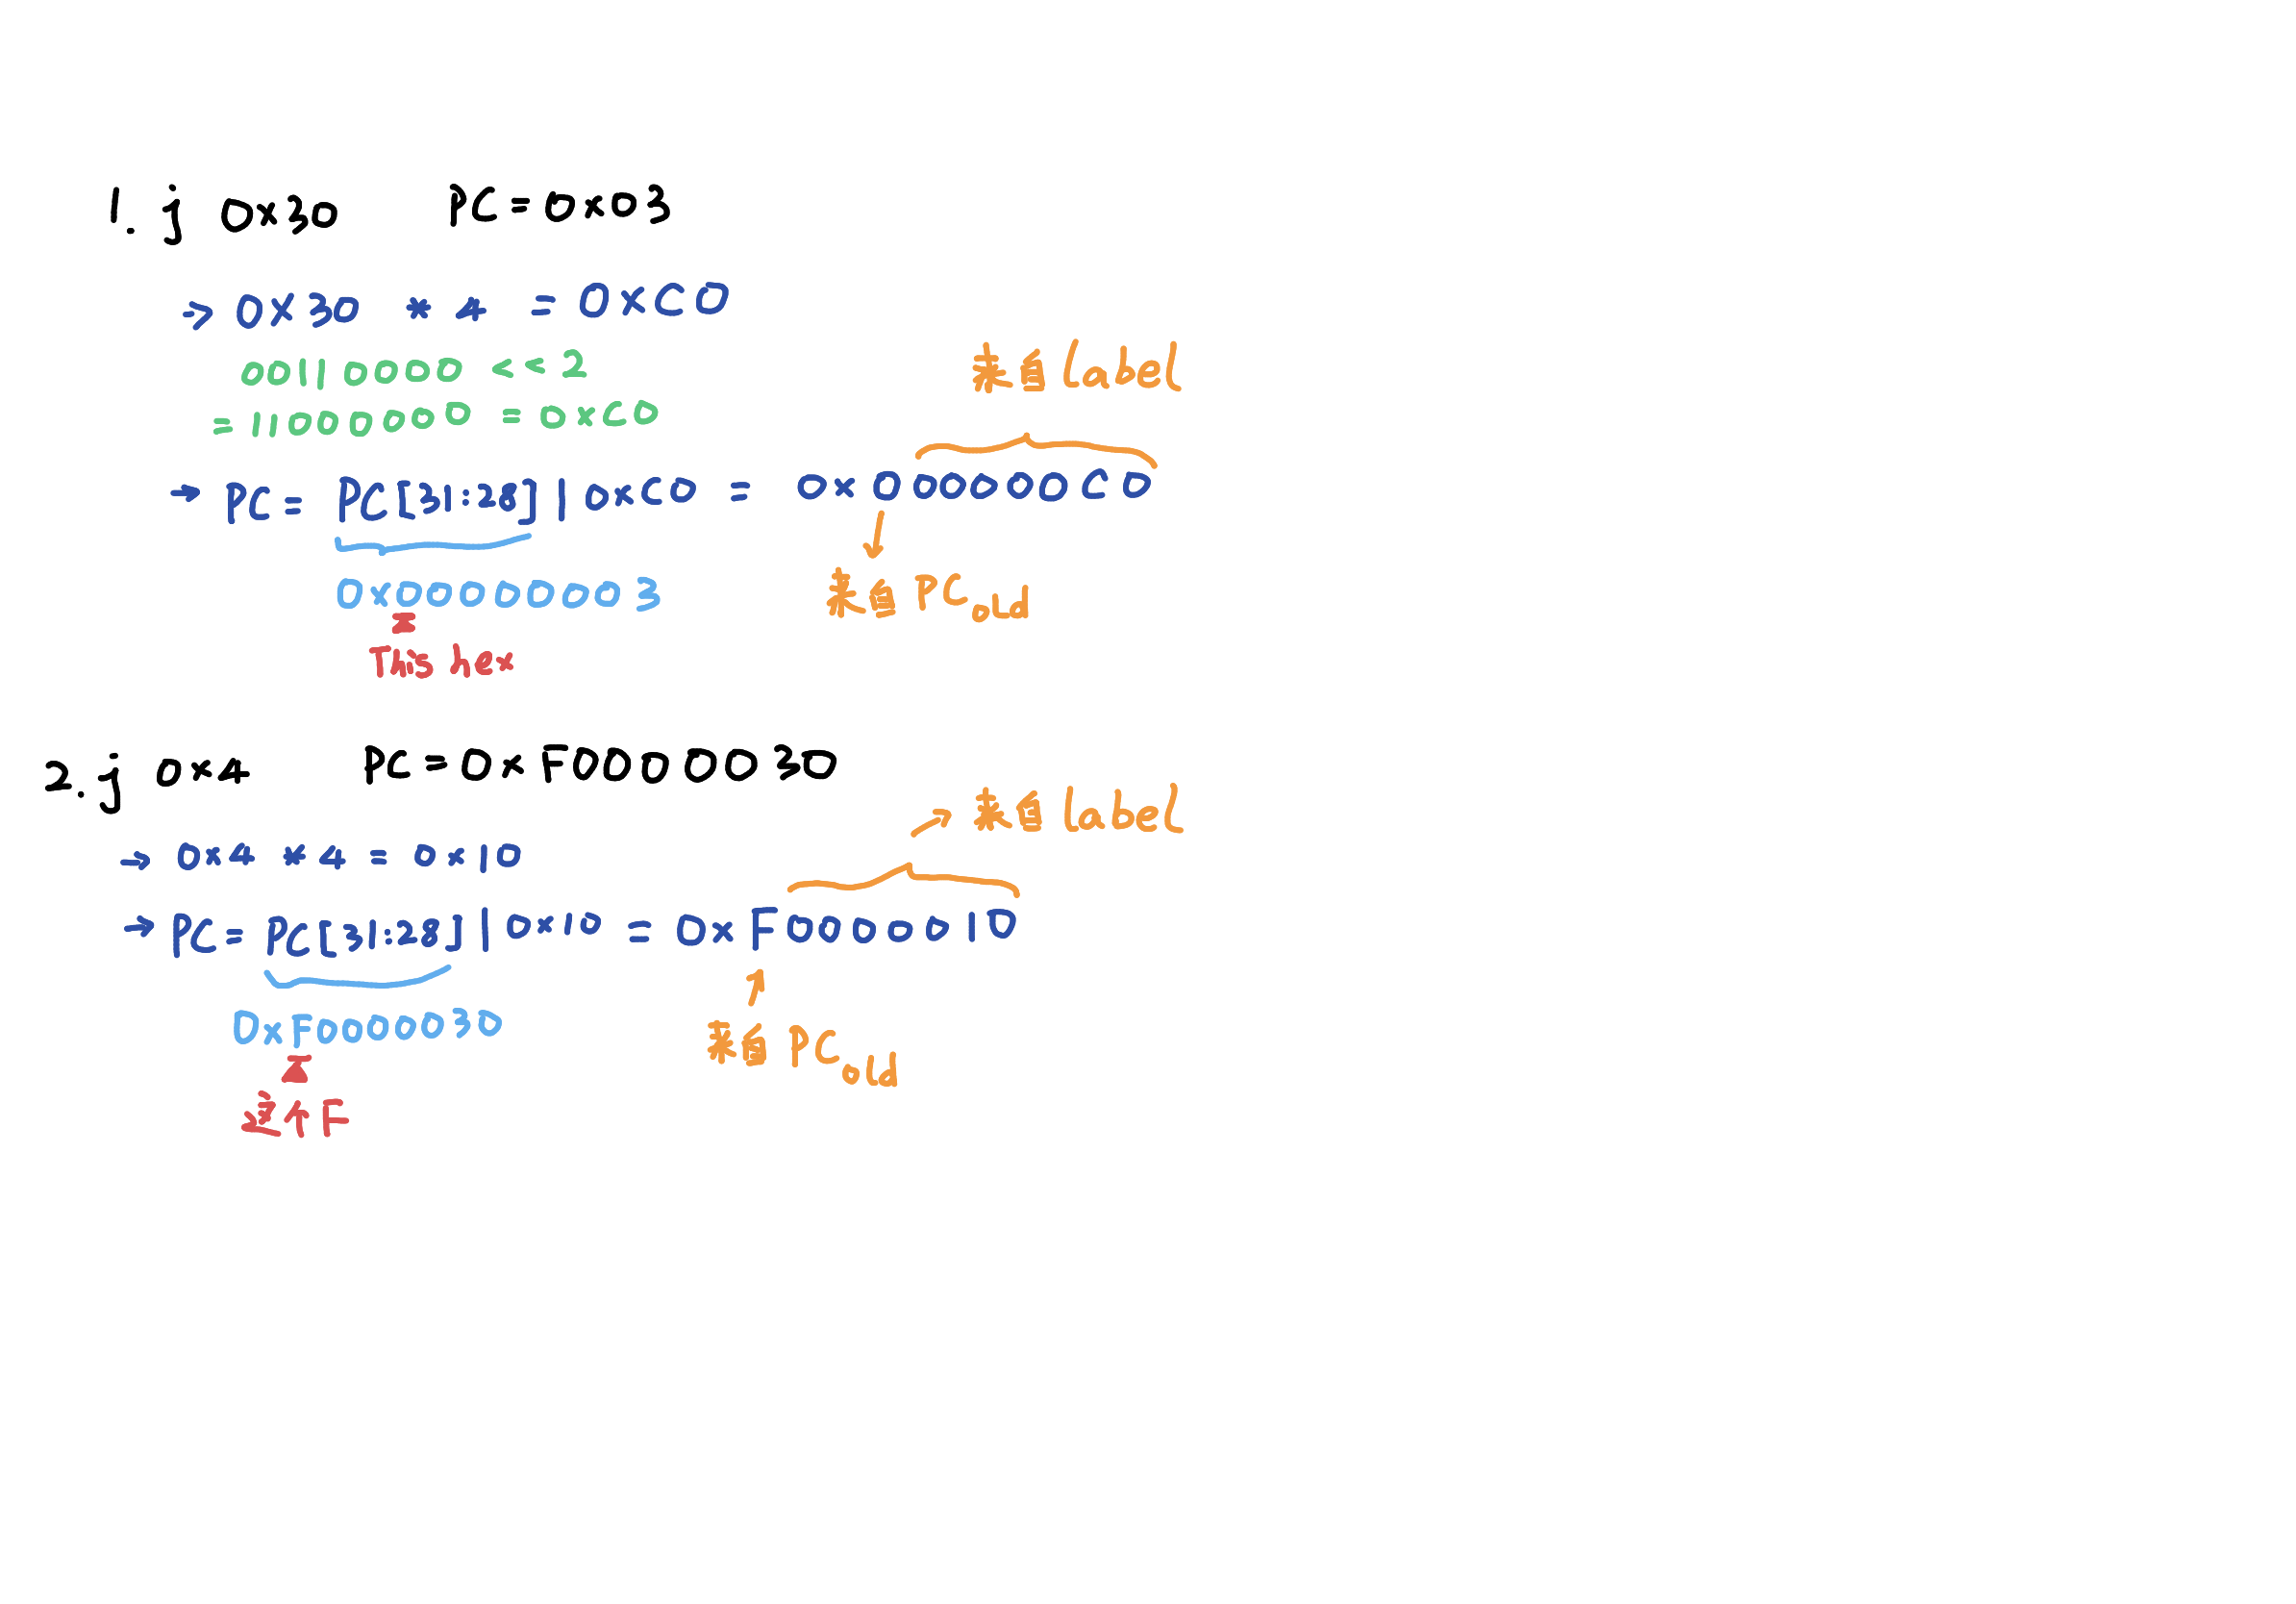 1. j 0x30 PC=0x03
→ 0x30 * 4 = 0xC0
00110000 << 2
= 11000000 = 0xC0
来自label
→ PC = PC[31:28] | 0xC0 = 0x000000C0
0x00000003
This hex
来自 PC old
2. j 0x4 PC=0xF0000030
→ 来自 label
→ 0x4 * 4 = 0x10
→ PC= PC[31:28] | 0x10 = 0xF0000010
0xF0000030
来自 PC old
这个F